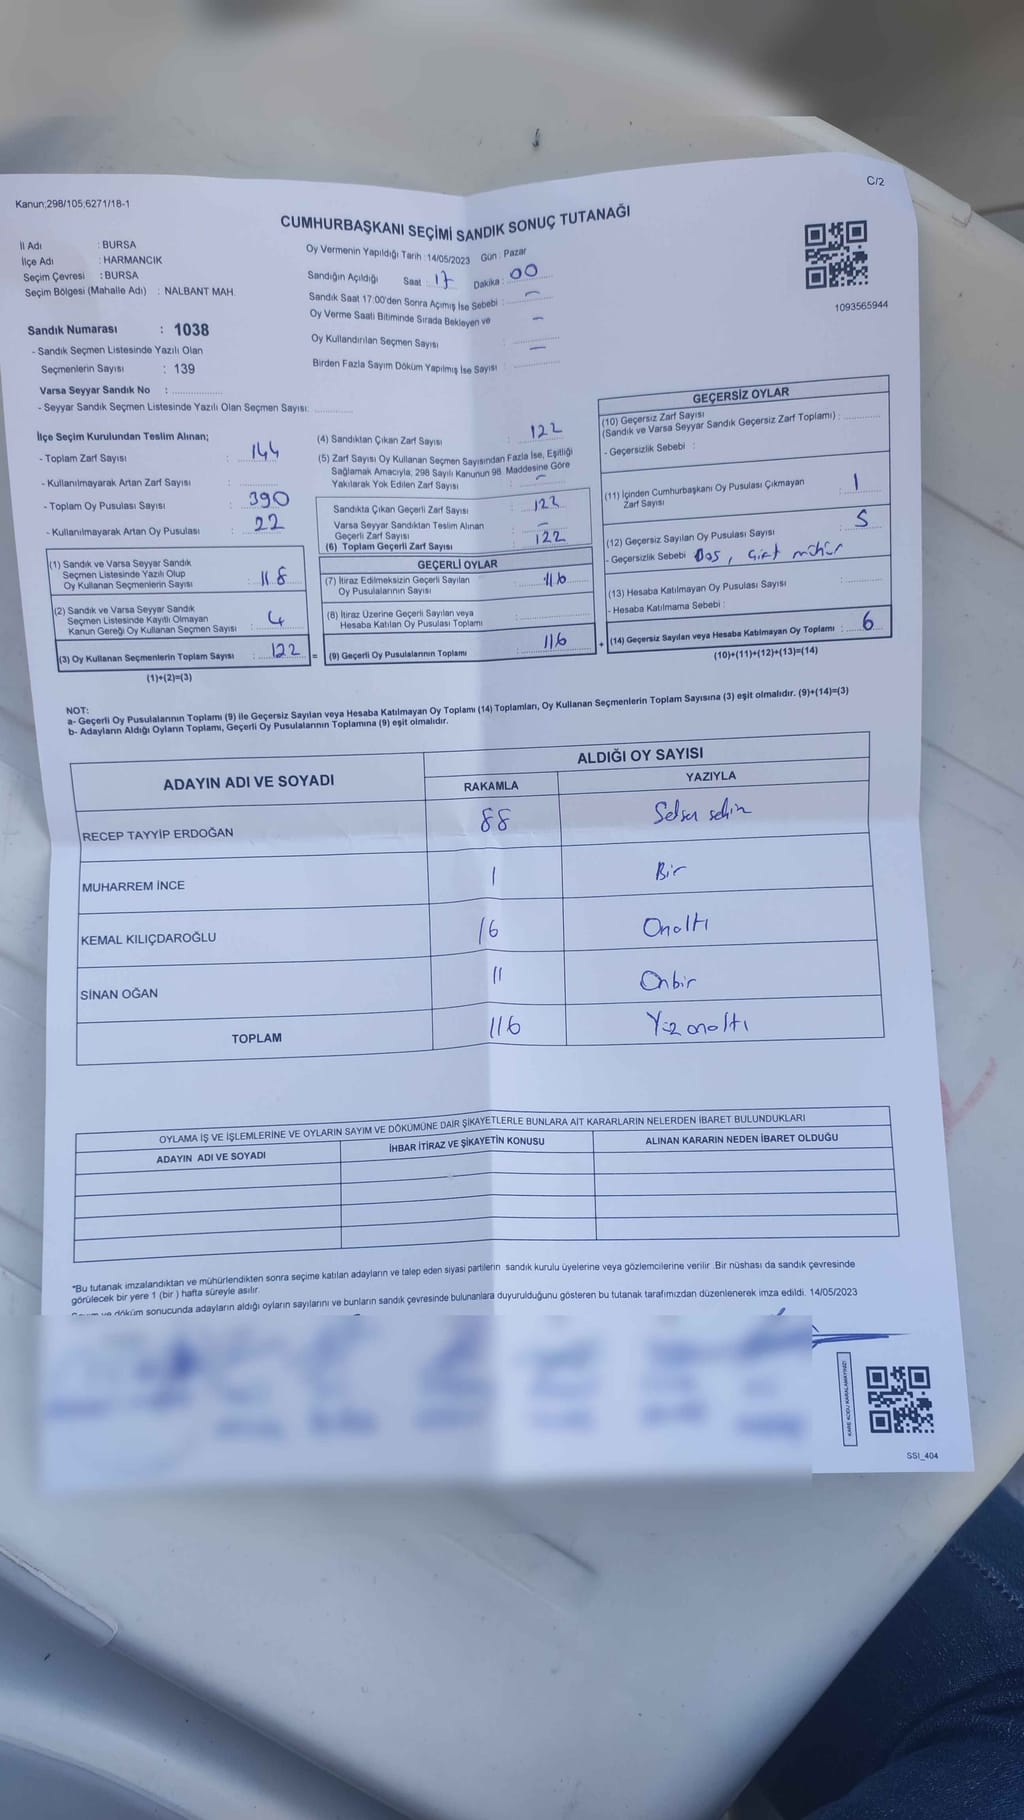 C/2
Kanun;298/105;6271/18-1
CUMHURBAŞKANI SEÇİMİ SANDIK SONUÇ TUTANAĞI
İl Adı : BURSA
İlçe Adı : HARMANCIK
Seçim Çevresi : BURSA
Seçim Bölgesi (Mahalle Adı) : NALBANT MAH.
Oy Vermenin Yapıldığı Tarih : 14/05/2023 Gün : Pazar
Sandığın Açıldığı Saat : 17 Dakika : 00
Sandık Saat 17:00'den Sonra Açımış İse Sebebi : -
Oy Verme Saati Bitiminde Sırada Bekleyen ve
Oy Kullandırılan Seçmen Sayısı -
Birden Fazla Sayım Döküm Yapılmış İse Sayısı : -
1093565944
Sandık Numarası : 1038
- Sandık Seçmen Listesinde Yazılı Olan
Seçmenlerin Sayısı : 139
Varsa Seyyar Sandık No :
- Seyyar Sandık Seçmen Listesinde Yazılı Olan Seçmen Sayısı:
İlçe Seçim Kurulundan Teslim Alınan;
- Toplam Zarf Sayısı : 144
- Kullanılmayarak Artan Zarf Sayısı :
- Toplam Oy Pusulası Sayısı : 390
- Kullanılmayarak Artan Oy Pusulası : 22
(1) Sandık ve Varsa Seyyar Sandık
Seçmen Listesinde Yazılı Olup
Oy Kullanan Seçmenlerin Sayısı : 118
(2) Sandık ve Varsa Seyyar Sandık
Seçmen Listesinde Kayıtlı Olmayan
Kanun Gereği Oy Kullanan Seçmen Sayısı : 4
(3) Oy Kullanan Seçmenlerin Toplam Sayısı : 122 =
(1)+(2)=(3)
(4) Sandıktan Çıkan Zarf Sayısı : 122
(5) Zarf Sayısı Oy Kullanan Seçmen Sayısından Fazla İse, Eşitliği
Sağlamak Amacıyla, 298 Sayılı Kanunun 98. Maddesine Göre
Yakılarak Yok Edilen Zarf Sayısı : -
Sandıkta Çıkan Geçerli Zarf Sayısı : 122
Varsa Seyyar Sandıktan Teslim Alınan
Geçerli Zarf Sayısı : -
(6) Toplam Geçerli Zarf Sayısı : 122
GEÇERLİ OYLAR
(7) İtiraz Edilmeksizin Geçerli Sayılan
Oy Pusulalarının Sayısı : 116
(8) İtiraz Üzerine Geçerli Sayılan veya
Hesaba Katılan Oy Pusulası Toplamı :
(9) Geçerli Oy Pusulalarının Toplamı : 116 +
GEÇERSİZ OYLAR
(10) Geçersiz Zarf Sayısı
(Sandık ve Varsa Seyyar Sandık Geçersiz Zarf Toplamı) :
- Geçersizlik Sebebi :
(11) İçinden Cumhurbaşkanı Oy Pusulası Çıkmayan
Zarf Sayısı : 1
(12) Geçersiz Sayılan Oy Pusulası Sayısı : 5
- Geçersizlik Sebebi Boş, çift mühür
(13) Hesaba Katılmayan Oy Pusulası Sayısı :
- Hesaba Katılmama Sebebi :
(14) Geçersiz Sayılan veya Hesaba Katılmayan Oy Toplamı : 6
(10)+(11)+(12)+(13)=(14)
NOT:
a- Geçerli Oy Pusulalarının Toplamı (9) ile Geçersiz Sayılan veya Hesaba Katılmayan Oy Toplamı (14) Toplamları, Oy Kullanan Seçmenlerin Toplam Sayısına (3) eşit olmalıdır. (9)+(14)=(3)
b- Adayların Aldığı Oyların Toplamı, Geçerli Oy Pusulalarının Toplamına (9) eşit olmalıdır.
ADAYIN ADI VE SOYADI ALDIĞI OY SAYISI
RAKAMLA YAZIYLA
RECEP TAYYİP ERDOĞAN 88
MUHARREM İNCE 1 Bir
KEMAL KILIÇDAROĞLU 16 Onaltı
SİNAN OĞAN 11 Onbir
TOPLAM 116 Yüzonaltı
OYLAMA İŞ VE İŞLEMLERİNE VE OYLARIN SAYIM VE DÖKÜMÜNE DAİR ŞİKAYETLERLE BUNLARA AİT KARARLARIN NELERDEN İBARET BULUNDUKLARI
ADAYIN ADI VE SOYADI İHBAR İTİRAZ VE ŞİKAYETİN KONUSU ALINAN KARARIN NEDEN İBARET OLDUĞU
"Bu tutanak imzalandıktan ve mühürlendikten sonra seçime katılan adayların ve talep eden siyasi partilerin sandık kurulu üyelerine veya gözlemcilerine verilir .Bir nüshası da sandık çevresinde
görülecek bir yere 1 (bir ) hafta süreyle asılır.
ve döküm sonucunda adayların aldığı oyların sayılarını ve bunların sandık çevresinde bulunanlara duyurulduğunu gösteren bu tutanak tarafımızdan düzenlenerek imza edildi. 14/05/2023
KARE KODU KARALAMAYINIZ!
SSI_404